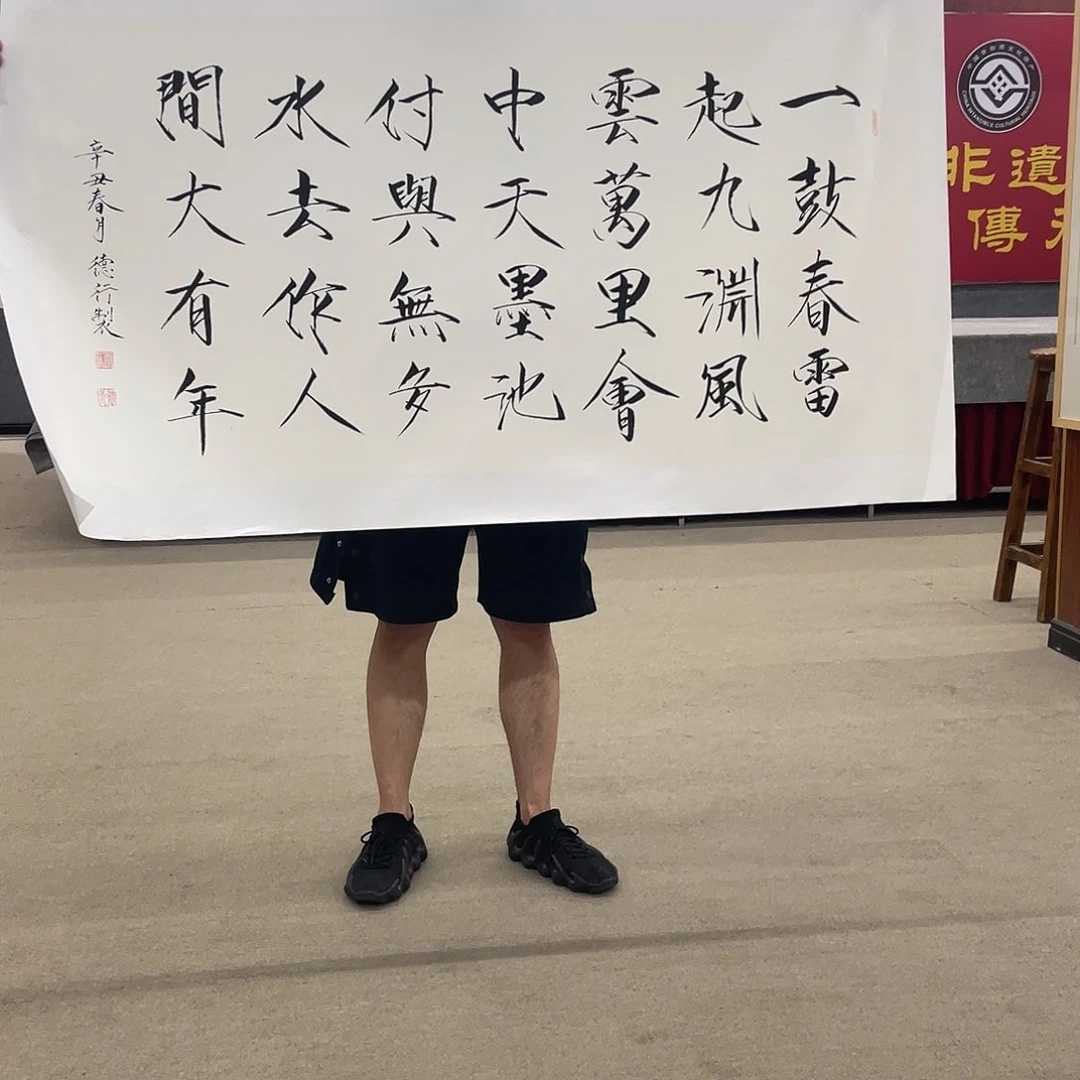 一鼓春雷
起九淵風
雲萬里會
中天墨池
付與無多
水去作人
間大有年
辛丑春月 德行製
CHINA INTANGIBLE CULTURAL HERITAGE
非遺
傳承